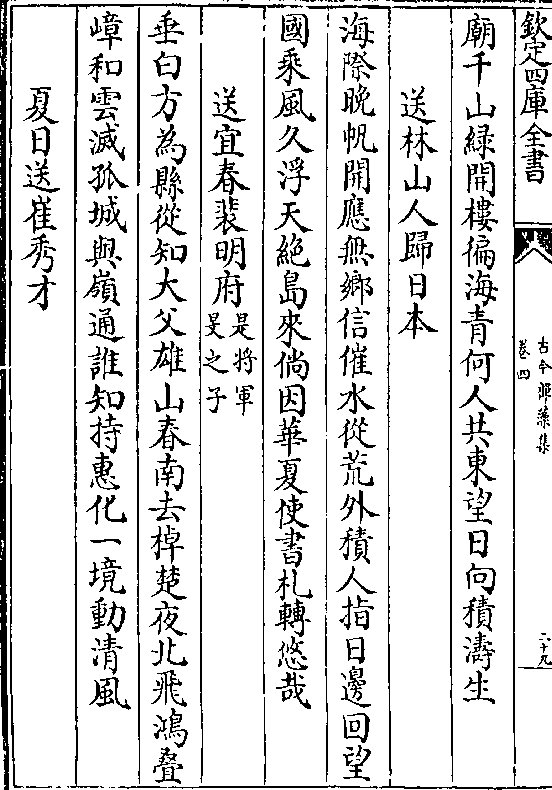 欽定四庫全書
古今禪藻集
卷四
二十九
廟千山緑開樓徧海青何人共東望日向積濤生
送林山人歸日本
海際晚帆開應無鄉信催水從荒外積人指日邊回望
國乘風久浮天絶島來倘因華夏使書札轉悠哉
送宜春裴明府是將軍旻之子
垂白方為縣從知大父雄山春南去棹楚夜北飛鴻疊
嶂和雲滅孤城與嶺通誰知持惠化一境動清風
夏日送崔秀才